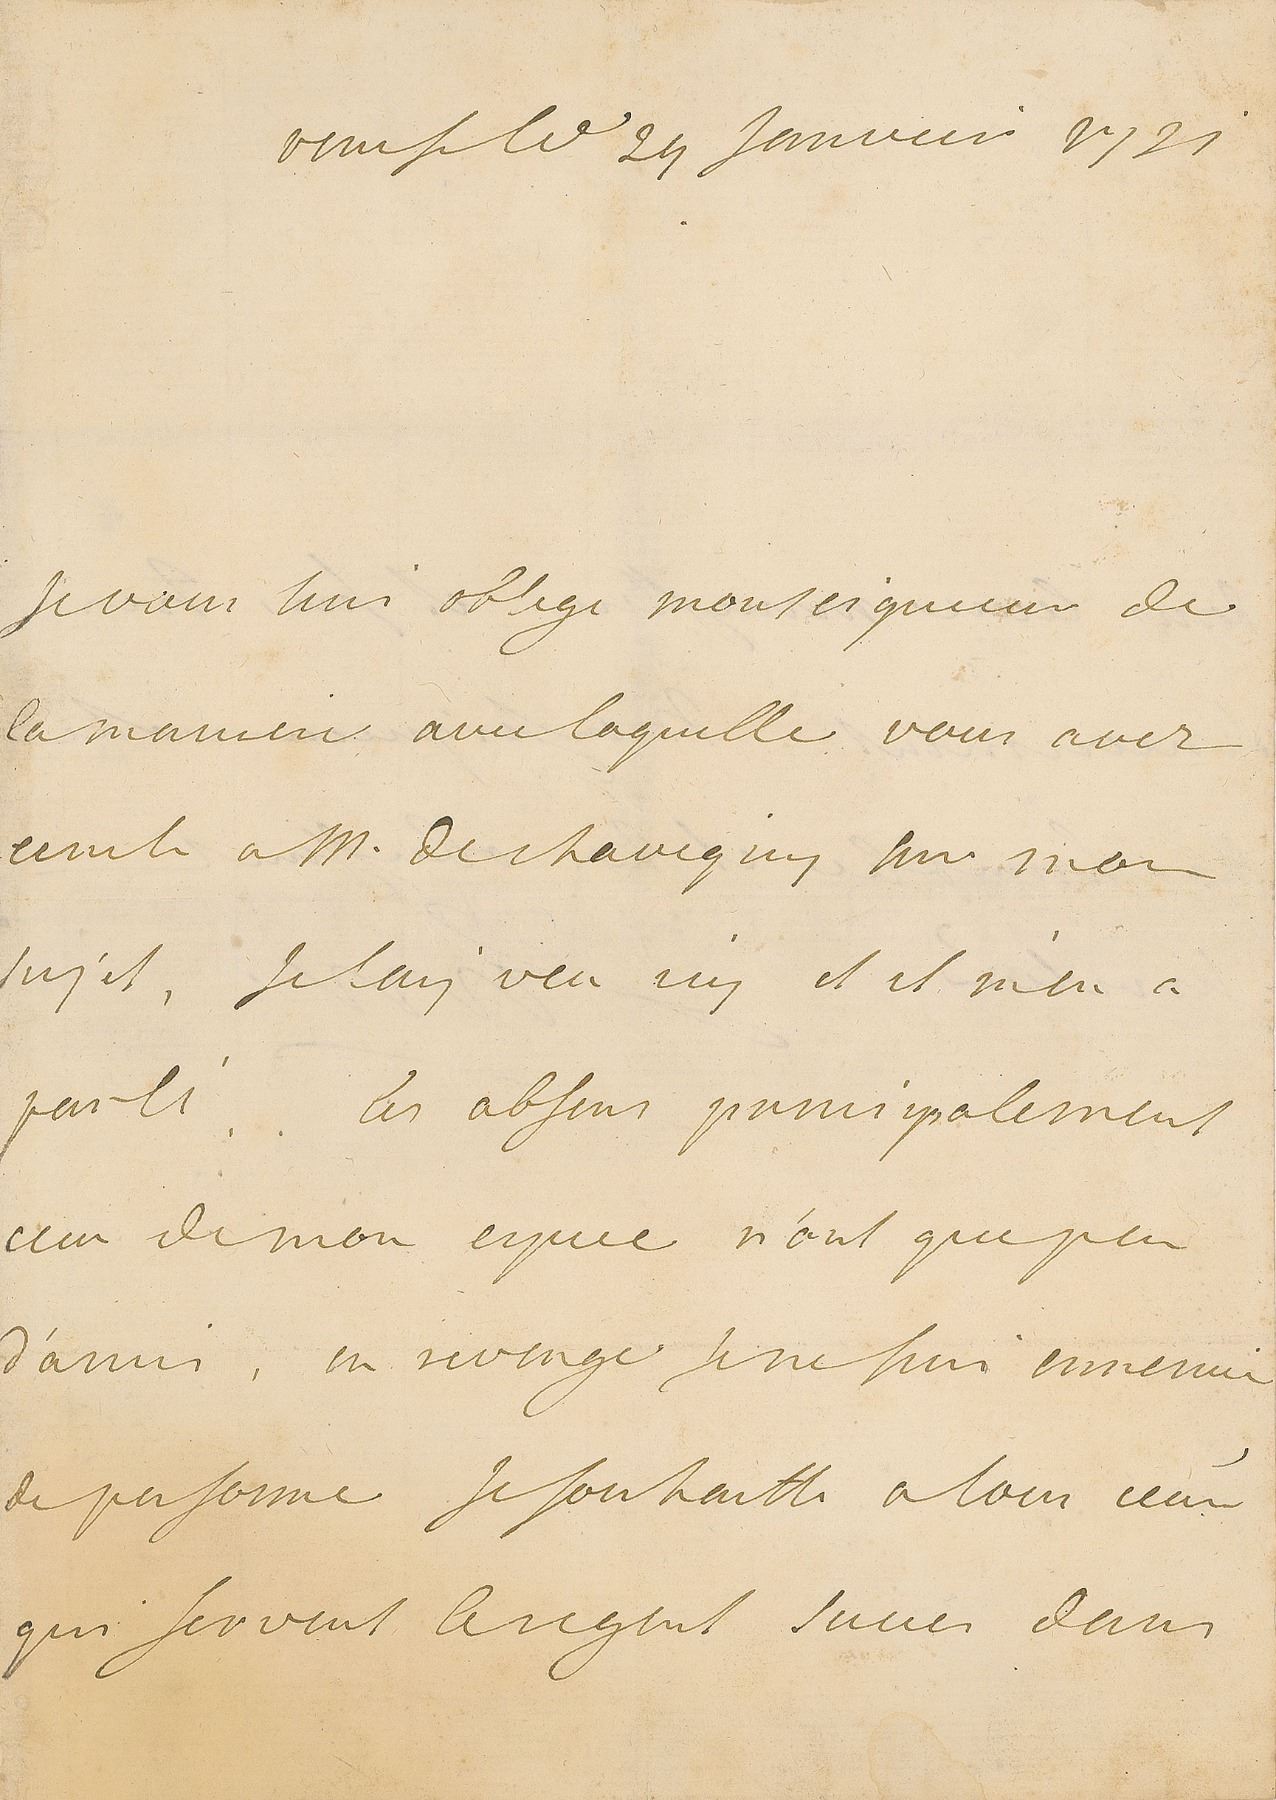 venise le 29 Janvier 1721
Je vous suis oblige monseigneur de
la maniere avec laquelle vous avez
ecrit a M. de chavigny sur mon
sujet, Je lay veu icy et il m'en a
parlé . . les absens principalement
ceux de mon espece n'ont que peu
d'amis, en revenge je ne suis ennemie
de personne Je souhaitte a tous ceux
qui servent le regent succes dans